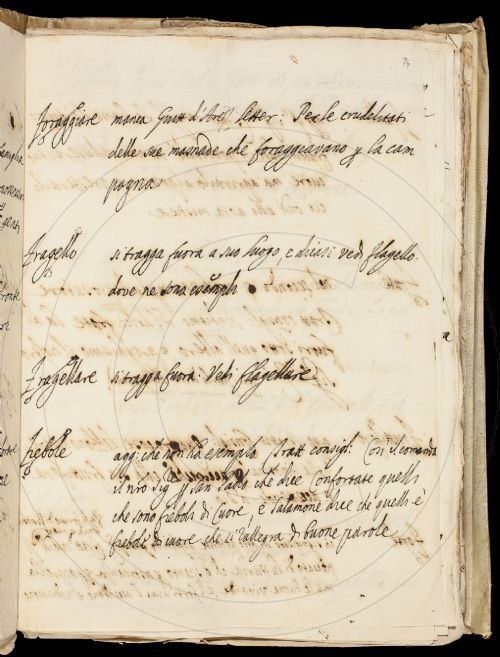 74
foraggiare manca Guitt d'Arez. Letter: Per le crudelitati
delle sue masnade che foraggiavano p la cam
pagna
fragello si tragga fuora a suo luogo, e dicasi vedi flagello.
dove ne sono esempli
fragellare si tragga fuora: Vedi flagellare
frebole agg: che non ha esemplo Tratt consigl. Così il comanda
il nro Sig p San Paolo che dice Confortate quelli
che sono freboli di Cuore, e Salamone dice che quelli è
frebole di cuore che si rallegra di buone parole